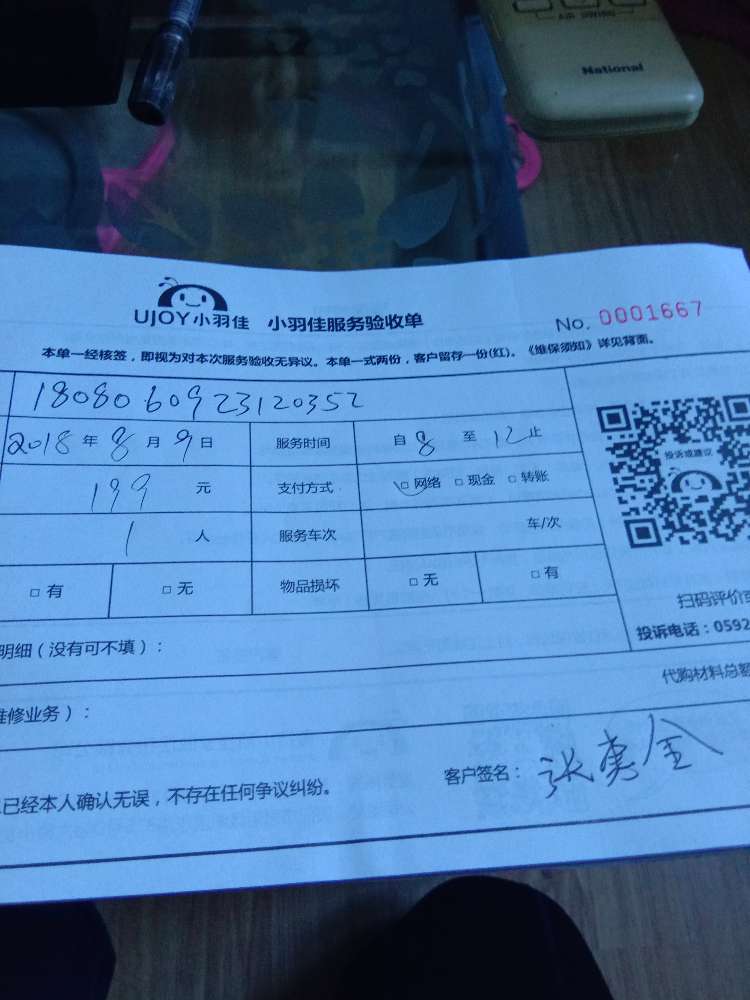 AIR SWING
National
UJOY小羽佳 小羽佳服务验收单
No. 0001667
本单一经核签，即视为对本次服务验收无异议。本单一式两份，客户留存一份(红)。《维保须知》详见背面。
1808060923120352
2018年8月9日 服务时间 自8至12止
199元 支付方式 □网络 □现金 □转账
1人 服务车次 车/次
□有 □无 物品损坏 □无 □有
投诉或建议
扫码评价
投诉电话：0592
明细（没有可不填）：
代购材料总额
维修业务）：
已经本人确认无误，不存在任何争议纠纷。
客户签名：张勇金